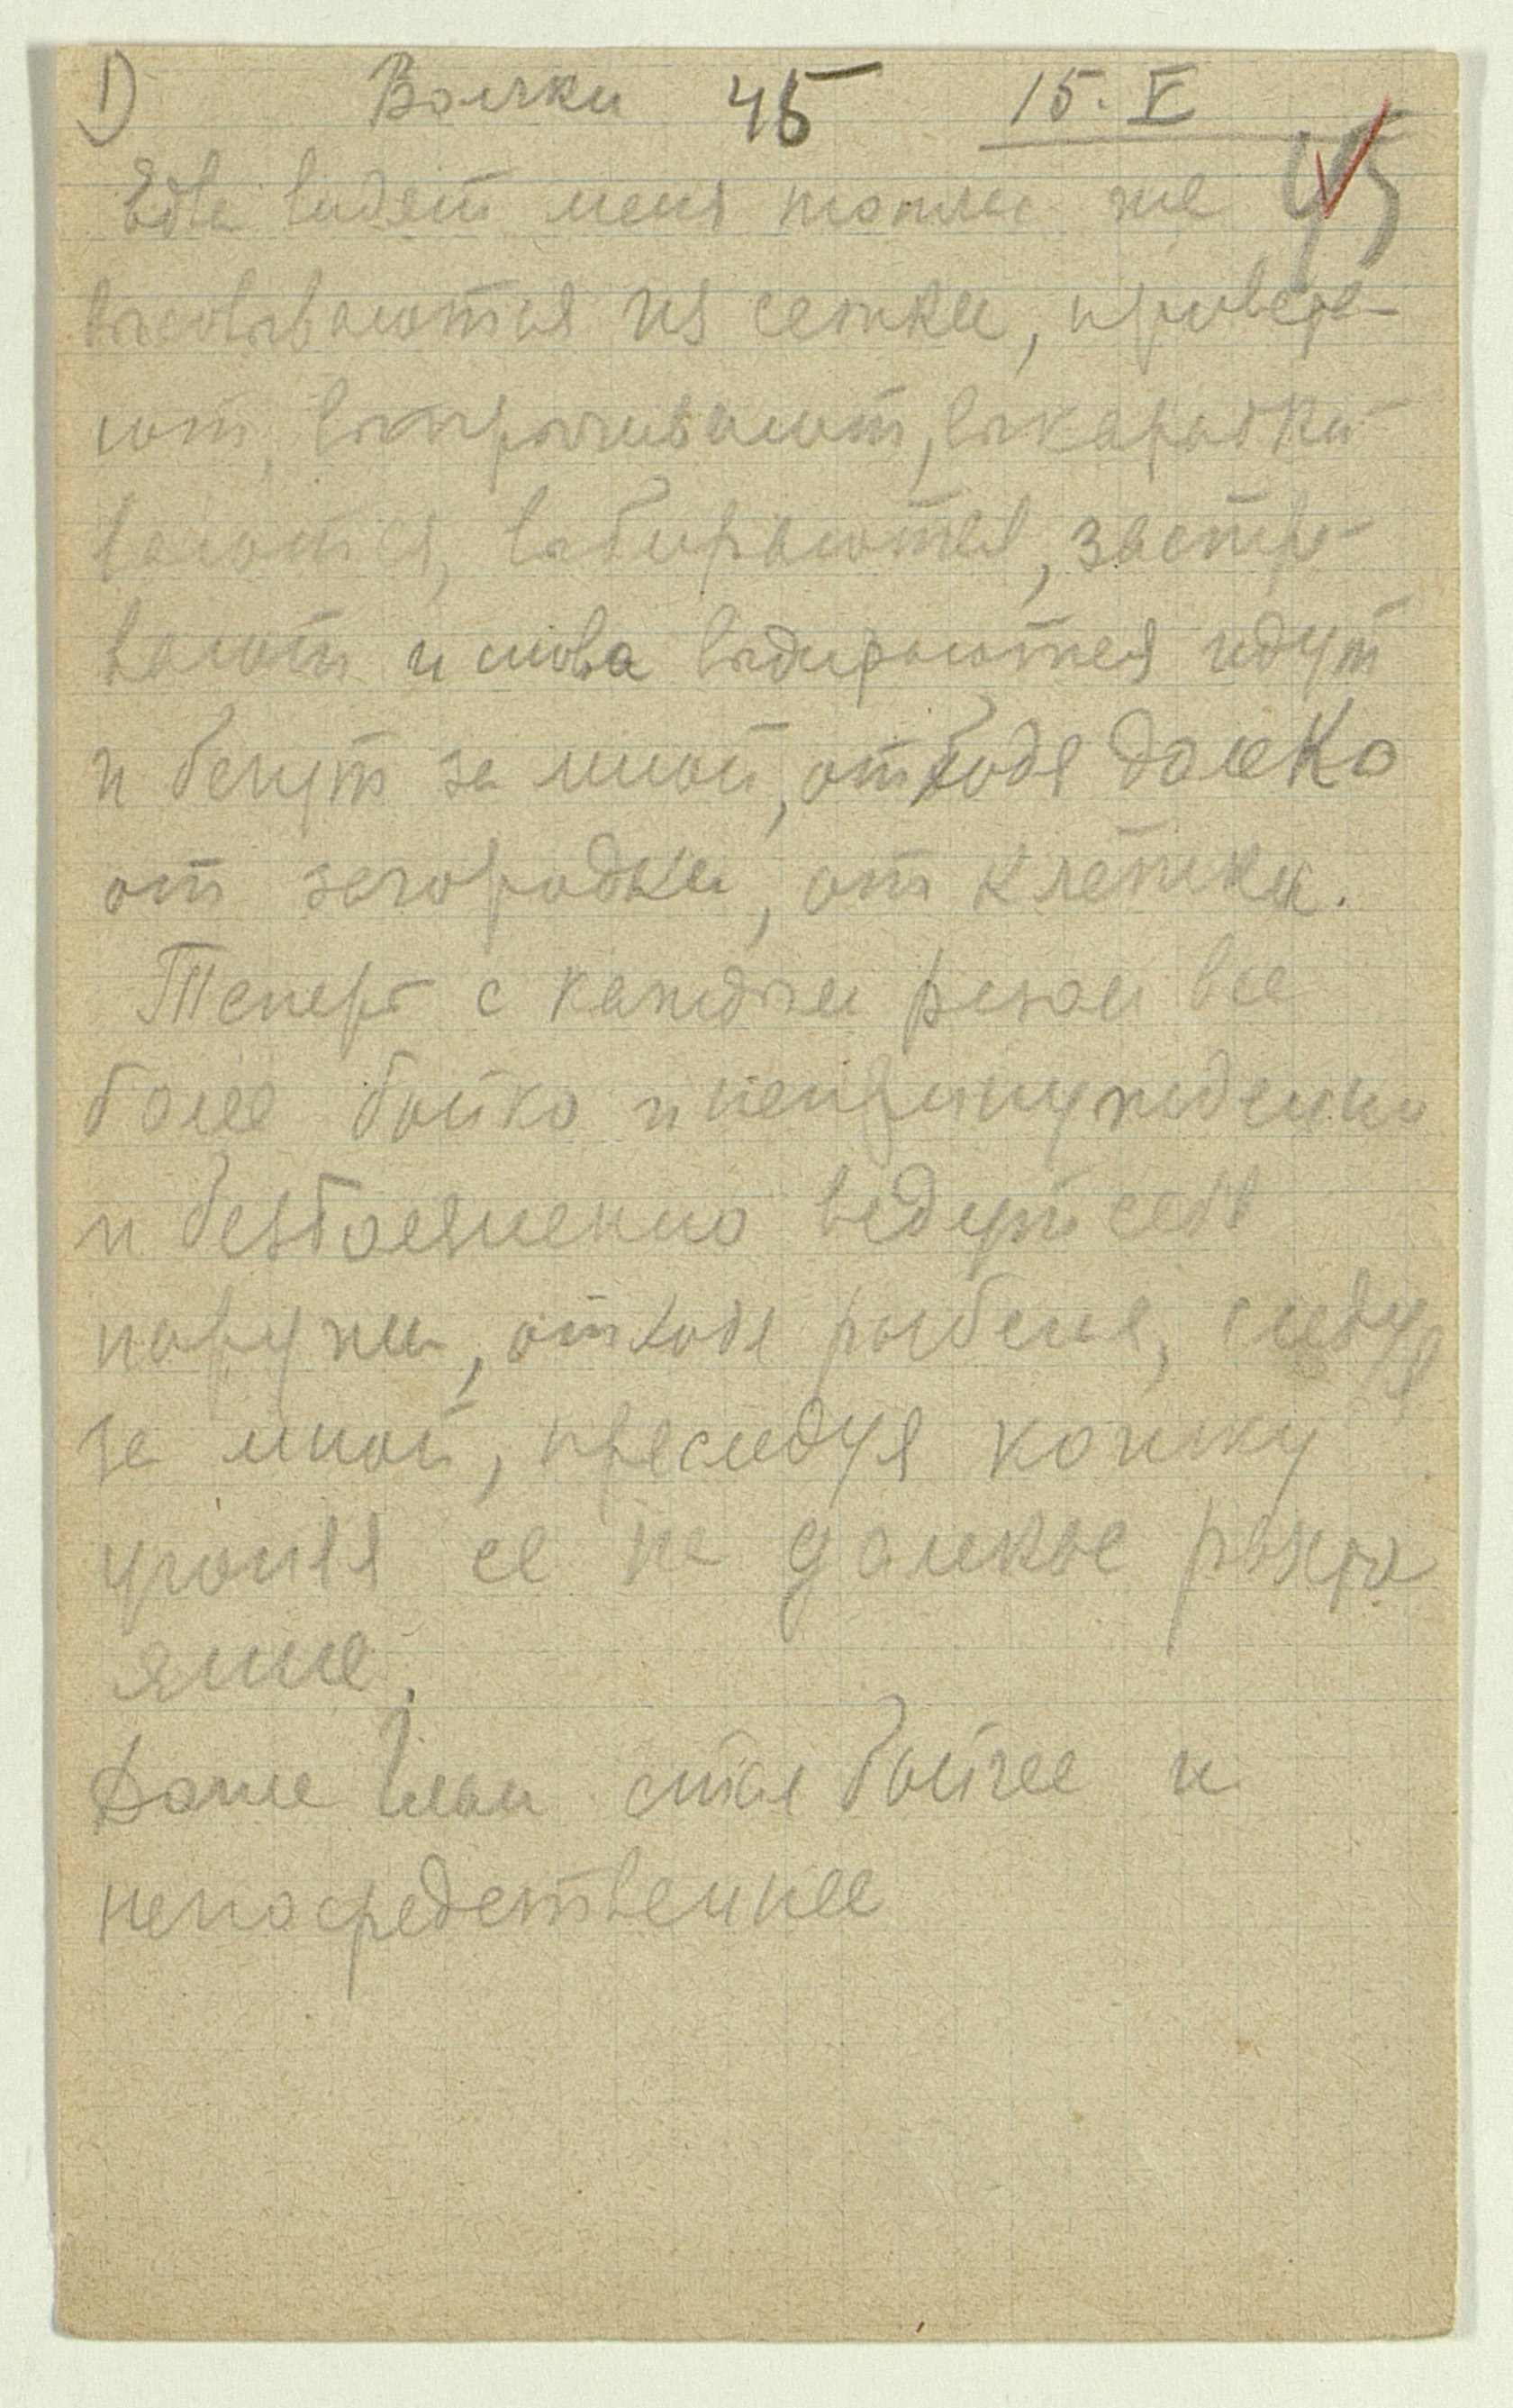 1) Волчки 45 15. V
Едва видят меня тотчас же 45
высовываются из сетки,
ют, выпрыгивают, выкарабки
ваются, выбираются, застре
вают и снова выдираются идут
и бегут за мной, отходя далеко
от загородки, от клетки.
Теперь с каждым разом все
более бойко и непринужденно
и безбоязненно ведут себя
наружи, отходя, следуя
за мной, преследуя кошку
угоняя ее на далекое расто
яние.
Даже стал бойчее и
непосредственнее